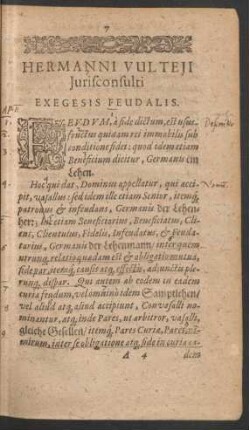 7
HERMANNI VULTEJI
Jurisconsulti
EXEGESIS FEUDALIS.
FEVDVM, à fide dictum, est usus-
fructus quidam rei immobilis sub
conditione fidei: quod idem etiam
Beneficium dicitur, Germanis ein
Lehen.
Hoc qui dat, Dominus appellatur, qui acci-
pit, vasallus: sed idem ille etiam Senior, itemq́;
patronus & infeudans, Germanis der Lehens
herr: hic etiam Beneficiarius, Beneficiatus, Cli-
ens, Clientulus, Fidelis, Infeudatus, & Feuda-
tarius, Germanis der Lehenmann, inter quem
utrunq; relatio quadam est & obligatio mutua,
fide par, itemq́; causis atq; effectis, adjunctis ple-
runq; dispar. Qui autem ab eodem in eadem
curia feudum, vel omnino idem Samptlehen /
vel aliud atq; aliud accipiunt, Convasalli no-
minantur, atq; inde Pares, ut arbitror, vasalli,
gleiche Gesellen / itemq́; Pares Curiæ, Pares
nimirum, inter se obligatione atq; fide in curia ea-
A 4
dem